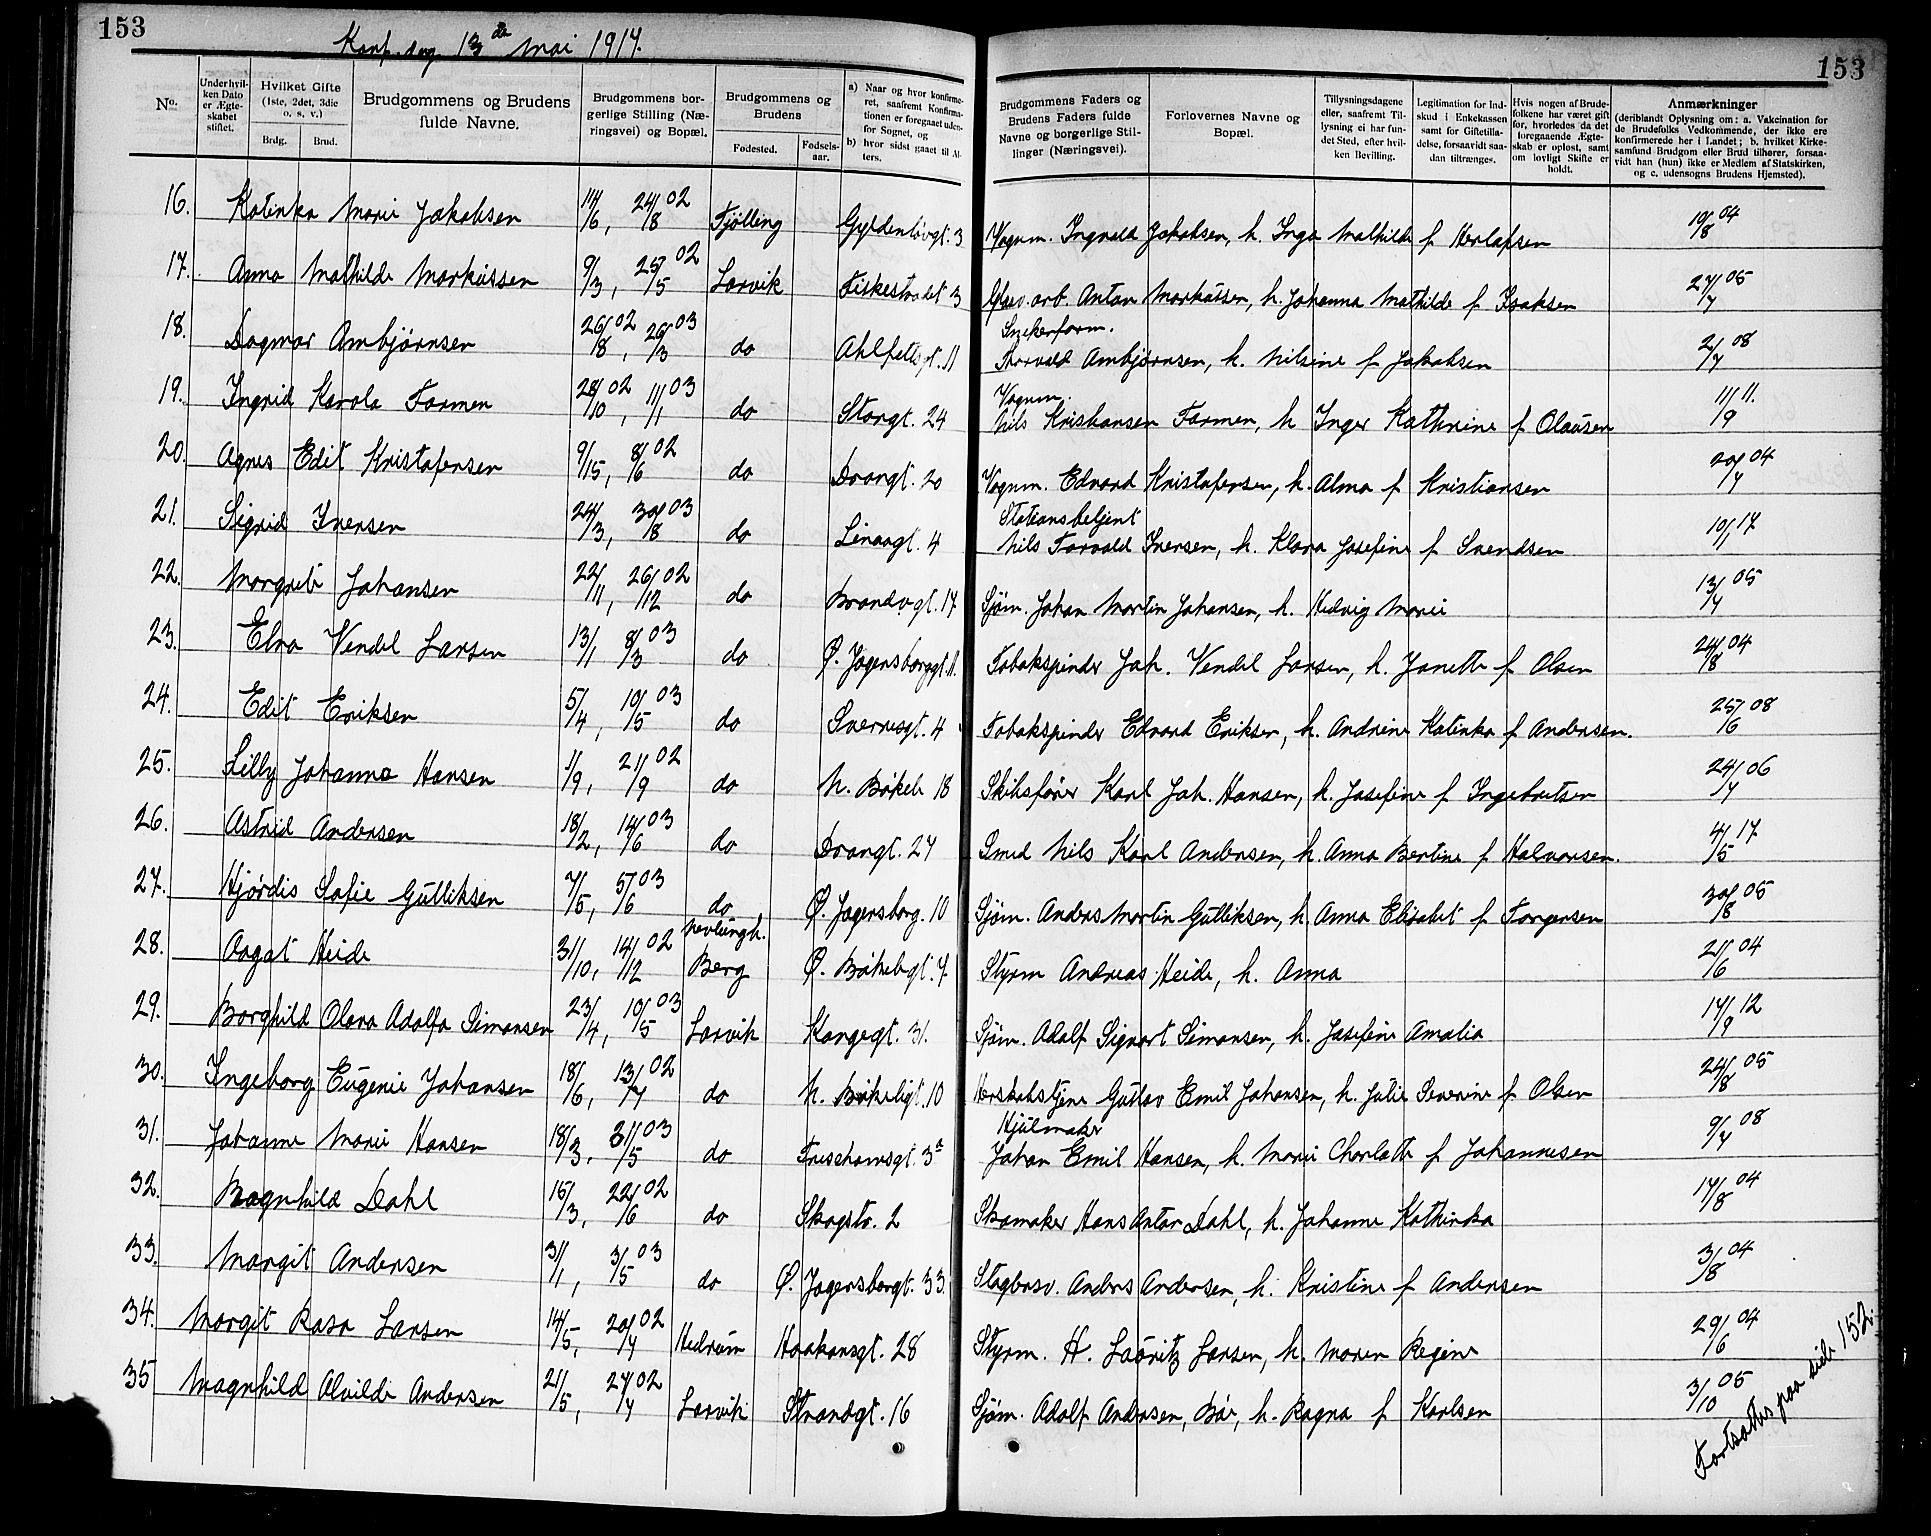 153
Konf. dag 13de mai 1917.
153
No.
Under hvilken Dato er Ægteskabet stiftet.
Hvilket Gifte (1ste, 2det, 3die o. s. v.)
Brdg. Brud.
Brudgommens og Brudens fulde Navne.
Brudgommens borgerlige Stilling (Næringsvei) og Bopæl.
Brudgommens og Brudens
Fødested. Fødselsaar.
a) Naar og hvor konfirmeret, saafremt Konfirmationen er foregaaet udenfor Sognet, og
b) hvor sidst gaaet til Alters.
Brudgommens Faders og Brudens Faders fulde Navne og borgerlige Stillinger (Næringsvei).
Forlovernes Navne og Bopæl.
Tillysningsdagene eller, saafremt Tillysning ei har fundet Sted, efter hvilken Bevilling.
Legitimation for Indskud i Enkekassen samt for Giftetilladelse, forsaavidt saadan tiltrænges.
Hvis nogen af Brudefolkene har været gift før, hvorledes da det foregaaende Ægteskab er opløst, samt om lovligt Skifte er holdt.
Anmærkninger
(deriblandt Oplysning om: a. Vakcination for de Brudefolks Vedkommende, der ikke ere konfirmerede her i Landet; b. hvilket Kirkesamfund Brudgom eller Brud tilhører, forsaavidt han (hun) ikke er Medlem af Statskirken, og c. udensogns Brudens Hjemsted).
16. Katinka Marie Jakobsen 14/6, 24/8 02 Tjølling Gyldenløvgt. 3 Vognm. Ingvald Jakobsen, h. Inga Mathilde f Herlofsen 19/8 04
17. Anna Mathilde Markussen 9/3, 25/5 02 Larvik Fiskestrædet 3 Glasv. arb. Anton Markussen, h. Johanna Mathilde f Isaksen 27/7 05
18. Dagmar Ambjørnsen 26/8 02, 26/3 03 do Ahlfeltsgt. 11 Snekerform. Thorvald Ambjørnsen, h. Nilsine f Jakobsen 2/7 08
19. Ingrid Karola Farmen 28/10 02, 11/1 03 do Storgt. 24 Vognm. Nils Kristiansen Farmen, h Inger Kathrine f Olausen 11/9 11.
20. Agnes Edit Kristofersen 9/15, 8/6 02 do Drangt. 20 Vognm. Edvard Kristofersen, h. Alma f Kristiansen 20/7 04
21. Sigrid Iversen 24/3, 30/8 03 do Linaagt. 4 Stationsbetjent Nils Torvald Iversen, h. Klara Josefine f Svendsen 10/1 17
22. Margrete Johansen 22/11, 26/12 02 do Brandvgt. 17 Sjøm. Johan Martin Johansen, h. Hedvig Marie 13/7 05
23. Elna Vendel Larsen 13/1 8/3 03 do Ø. Jegersborggt. 11. Tobakspinder Joh. Vendel Larsen, h. Janette f Olsen 24/8 04
24. Edit Eriksen 5/4, 10/5 03 do Sverresgt. 4 Tobakspinder Edvard Eriksen, h. Andrine Katinka f Andersen. 25/6 08
25. Lilly Johanna Hansen 1/9, 21/9 02 do N. Bøkele 18 Skibsfører Karl Joh. Hansen, h. Josefine f Ingebretsen 24/7 06
26. Astrid Andersen 18/2, 14/6 03 do Drangt. 27 Smed Nils Karl Andersen, h. Anna Bertine f Halvorsen. 4/5 17
27. Hjørdis Sofie Gulliksen 7/5, 5/6 03 do Ø. Jegersborg. 10 Sjøm. Anders Martin Gulliksen, h. Anna Elisabet f Torgersen 30/8 05
28. Aagot Heide 31/10, 14/12 02 Nevlungh. Berg Ø. Bøkelegt. 7. Styrm Andreas Heide, h. Anna 21/6 04
29. Borghild Olava Adolfa Simonsen 23/4, 10/5 03 Larvik Kongegt. 31. Sjøm. Adolf Sigvart Simonsen, h. Josefine Amalia 17/9 12
30. Ingeborg Eugenie Johansen 18/6, 13/7 02 do N. Bøkeligt. 10 Herskabstjener Gustav Emil Johansen, h. Julie Severine f Olsen 24/8 05
31. Johanne Marie Hansen 18/3, 21/5 03 do Freschowsgt. 3a Hjulmaker Johan Emil Hansen, h. Marie Charlotte f Johannesen 9/7 08
32. Ragnhild Dahl 15/3, 22/6 02 do Skogstr. 2 Skomaker Hans Anton Dahl, h. Johanne Kathinka 17/8 04
33. Margit Andersen 31/1, 3/5 03 do Ø. Jegersborgt. 33. Anders Andersen, h. Kristine f Andersen 3/8 04
34. Margit Rosa Larsen 14/5, 20/7 02 Hedrum Haakonsgt. 28 Styrm. H. Lauritz Larsen, h. Maren Regine 29/6 04
35 Magnhild Alvilde Andersen 21/5, 27/7 02 Larvik Strandgt. 16 Sjøm. Adolf Andersen, h. Ragna f Karlsen 3/10 05
Fortsættes paa side 152.